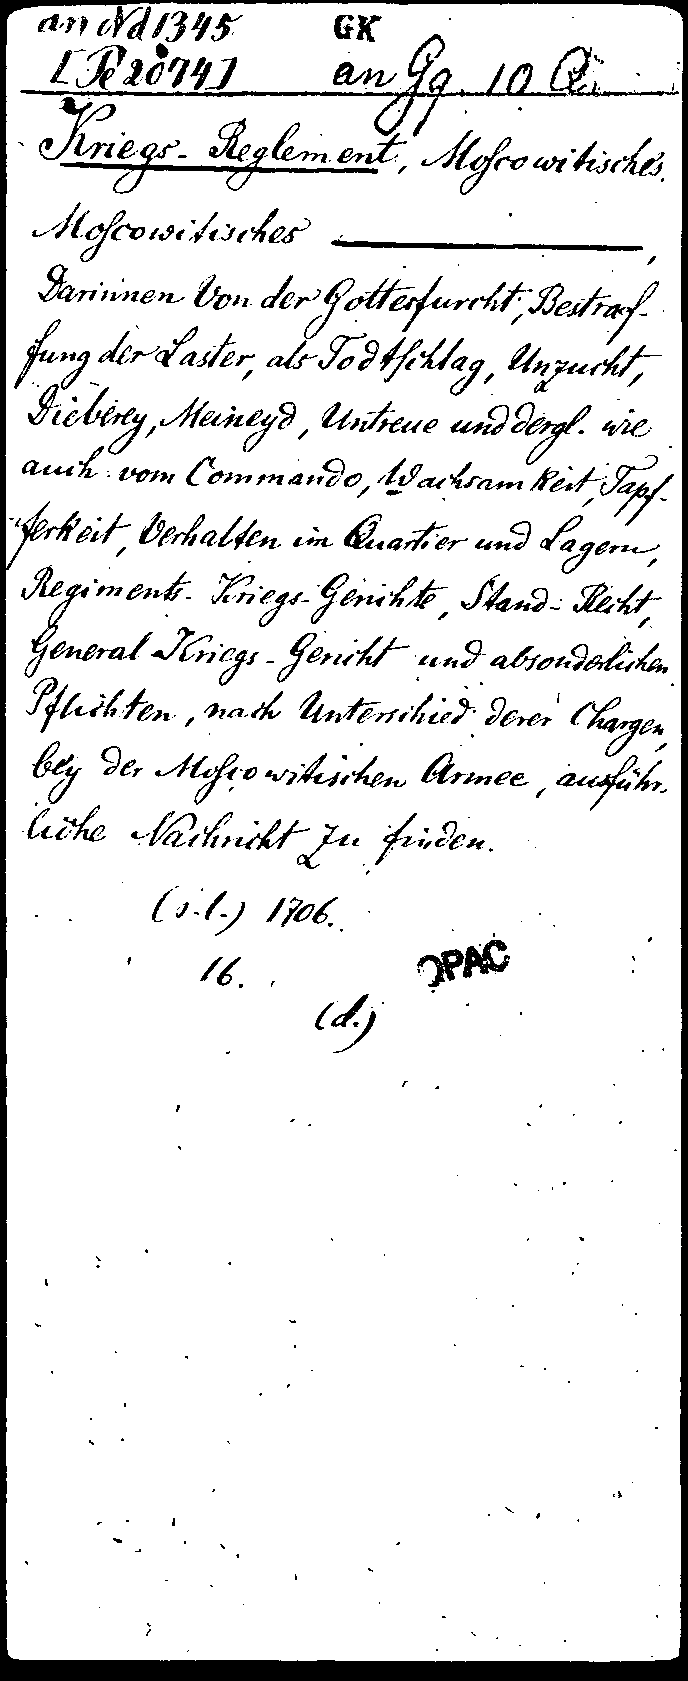 an Nd 1345 GK
[Pe 2074] an Gg. 10
Kriegs-Reglement, Moscowitisches.
Moscowitisches ————,
Darinnen Von der Gottesfurcht, Bestraf-
fung der Laster, als Todtschlag, Unzucht,
Dieberey, Meineyd, Untreue und dergl. wie
auch vom Commando, Wachsamkeit, Tapf-
ferkeit, Verhalten im Quartier und Lagern,
Regiments-Kriegs-Gerichte, Stand-Recht,
General Kriegs-Gericht und absonderlichen
Pflichten, nach Unterschied derer Chargen,
bey der Moscowitischen Armee, ausführ-
liche Nachricht zu finden.
(s.l.) 1706.
16. OPAC
(d.)